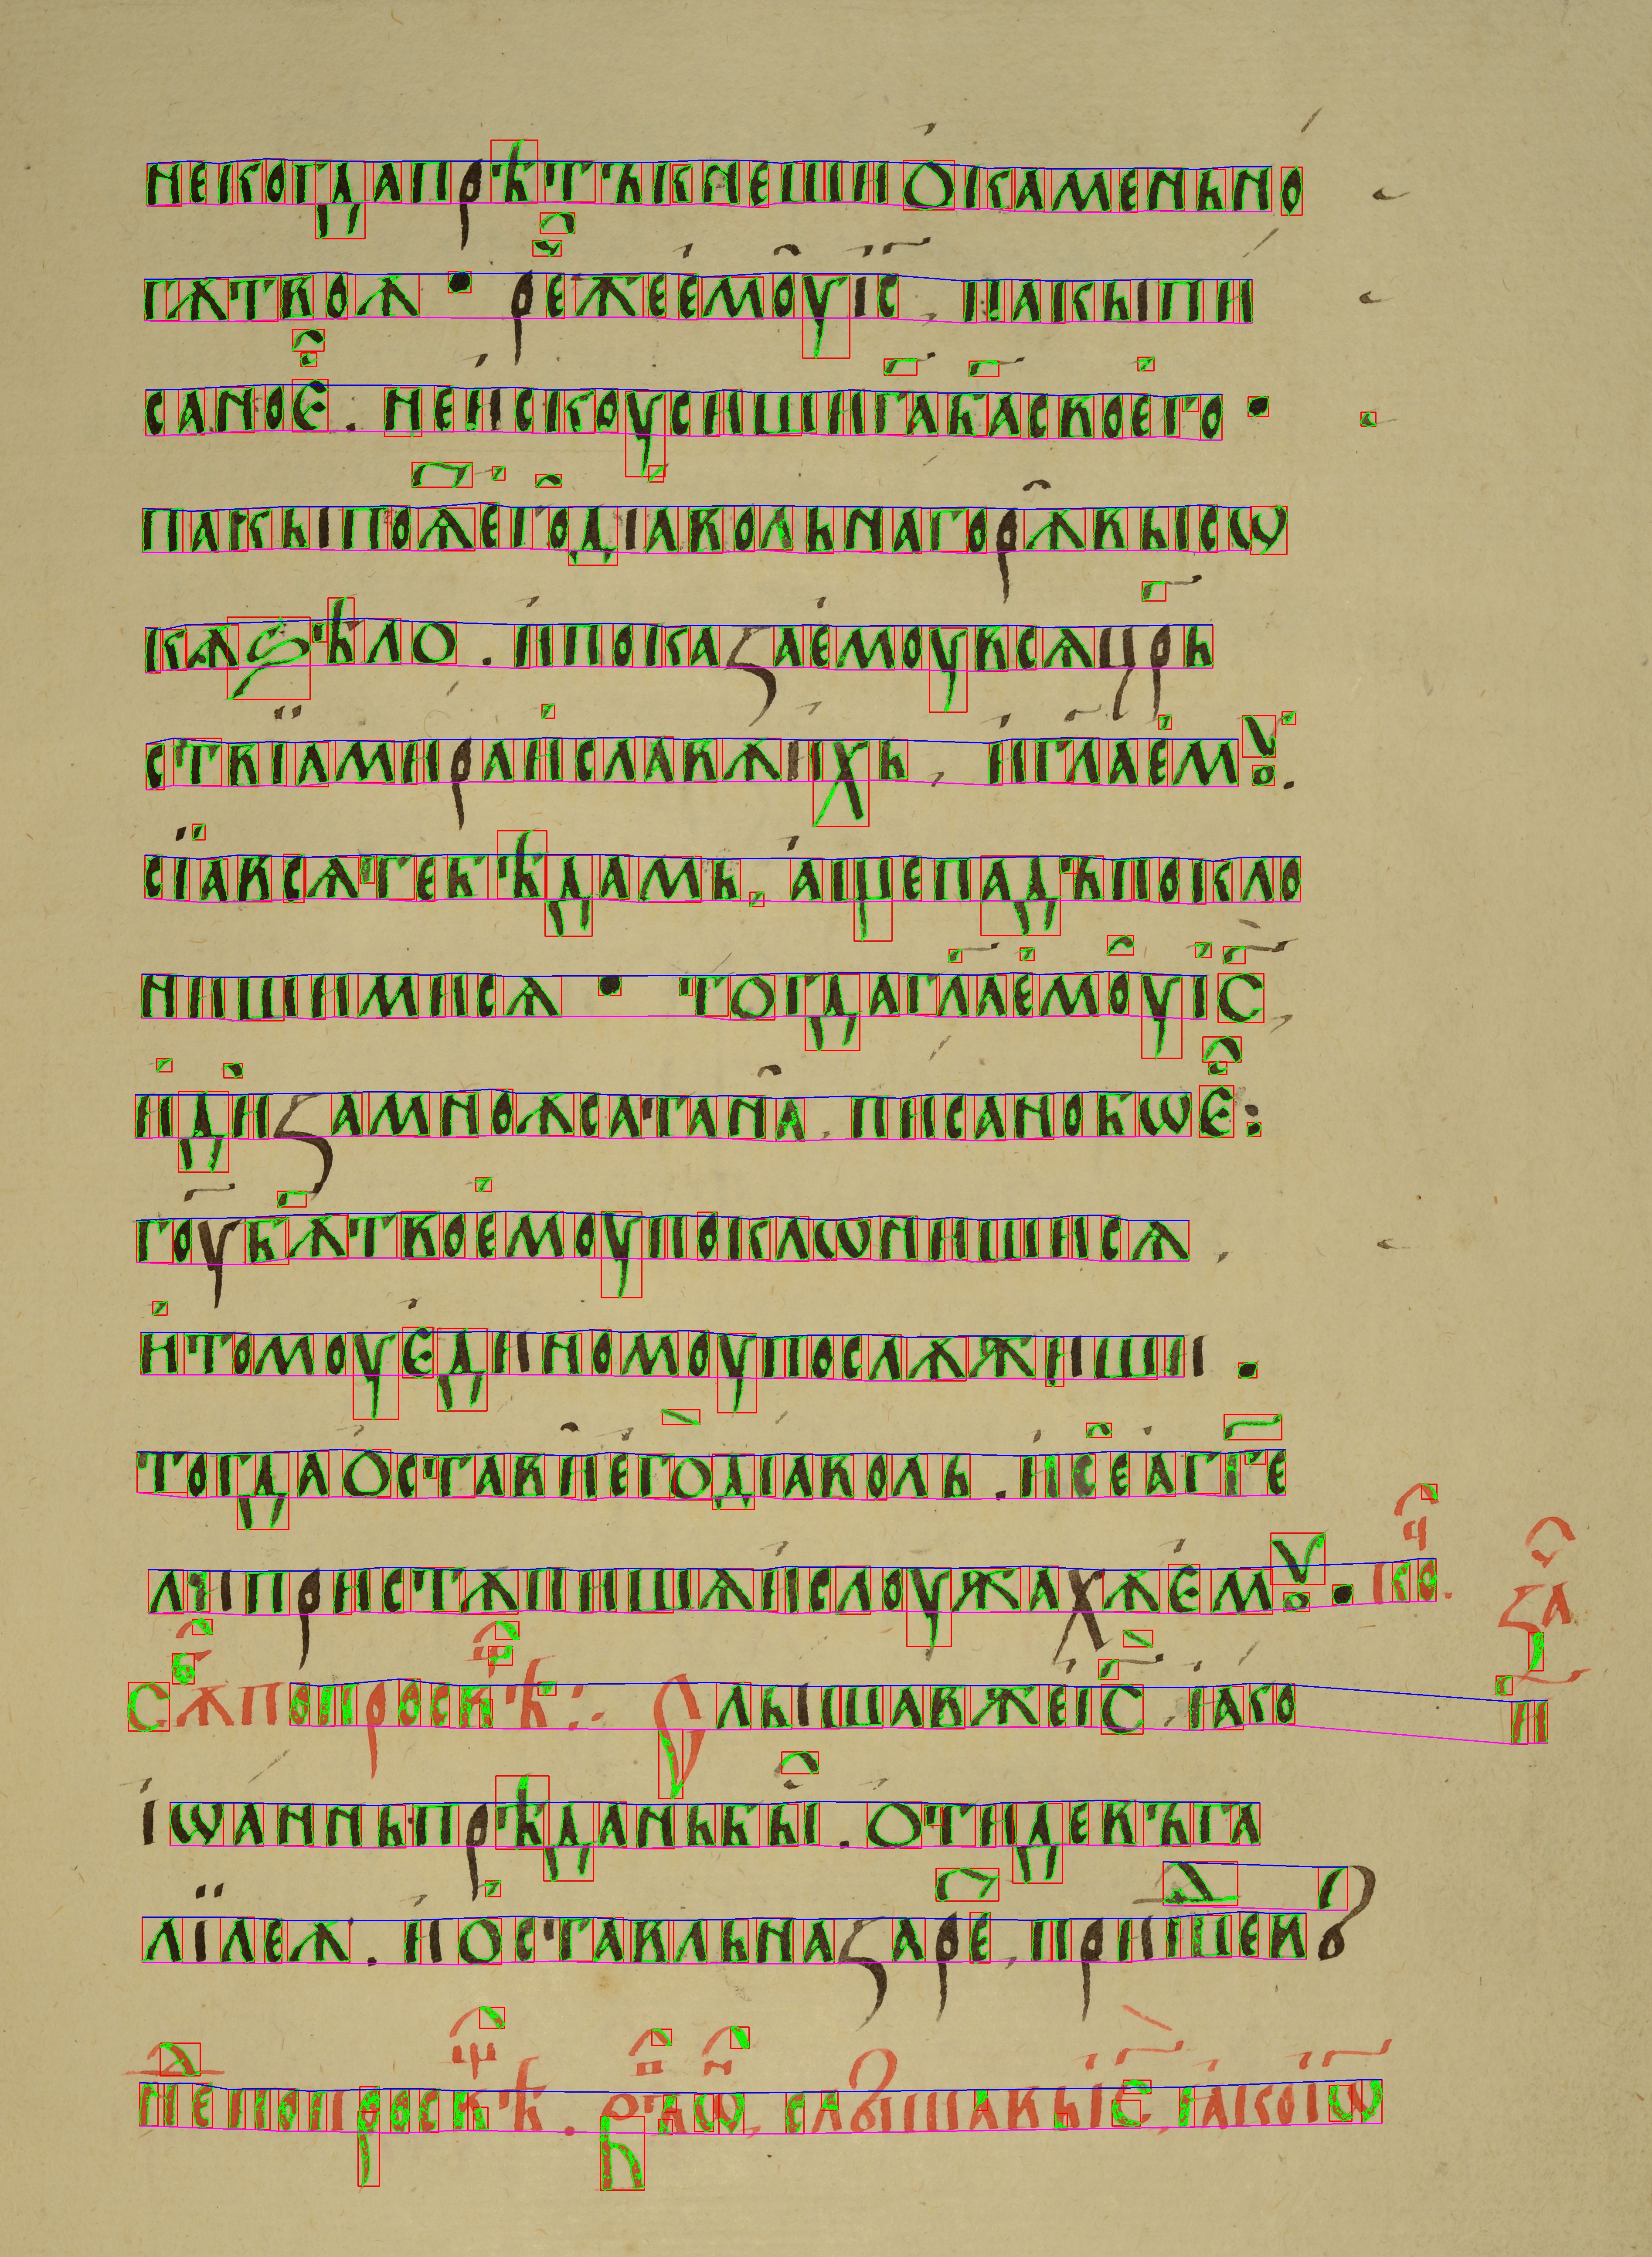 некогда прѣтъкнеши ѡ камень но
гѫ твоѫ • рече емоу іс , пакы пи
сано е҄ . не искоусиши га ба своего •
пакы поѧ҄ его діаволь на горѫ высѡ
кѫ ѕѣло . и показа емоу всѧ црь
ствіа мира и славѫ ихь , и гла емꙋ .
сіа всѧ тебѣ дамь , аще падъ покло
ниши ми сѧ • тогда гла емоу іс ,
иди за мноѫ сатана , писано бѡ е҄ :
гоу бѫ твоемоу поклѡниши сѧ ,
и томоу единомоу послѫжиши .
тогда остави его діаволь . и се аггге
ли пристѫпишѧ и слоужахѫ емꙋ • ко҄ .
сѫ҄в по просв҄ѣ : Слышав же іс , іако
іѡаннь прѣдань бы҄ . отиде въ га
лілеѫ . и оставль назаре , пришеⷣ и
не҄ⷣ по просв҄ѣ . ѡ҄ , слышавь іс , іако іѡ